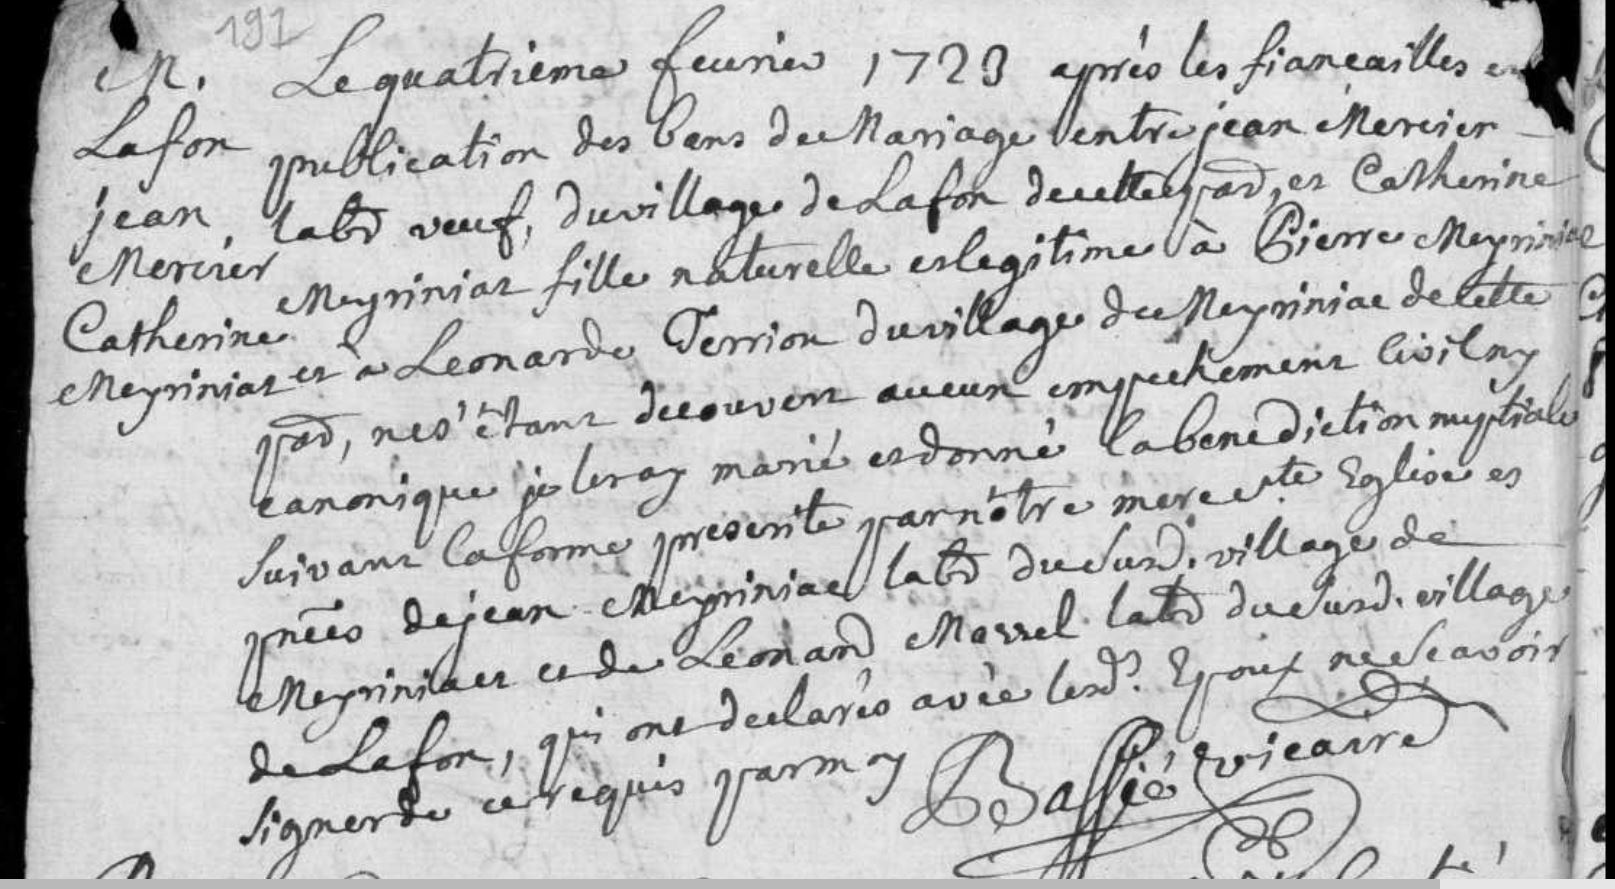 191
M. Le quatrieme feurier 1723 aprés les fiancailles et
Lafon publication des bans de Mariage entre jean Mercier
jean labr veuf, du village de Lafon de cette parr, et Catherine
Mercier Meyriniat fille naturelle et legitime à Pierre Meyriniac
Catherine et à Leonarde Terrion du village de Meyriniac de cette
Meyriniat parr, ne s'étant decouvert aucun empechement civil ny
canonique je les ay marié et donné la benediction nuptiale
suivant la forme prescrite par nôtre mere ste Eglise es
pnces de jean Meyriniac labr du susd. village de
Meyriniact et de Leonard Massel labr du susd. village
de Lafon, qui ont declarés avec lesds. Epoux ne scavoir
signer de ce requis par moy Bassié vicaire